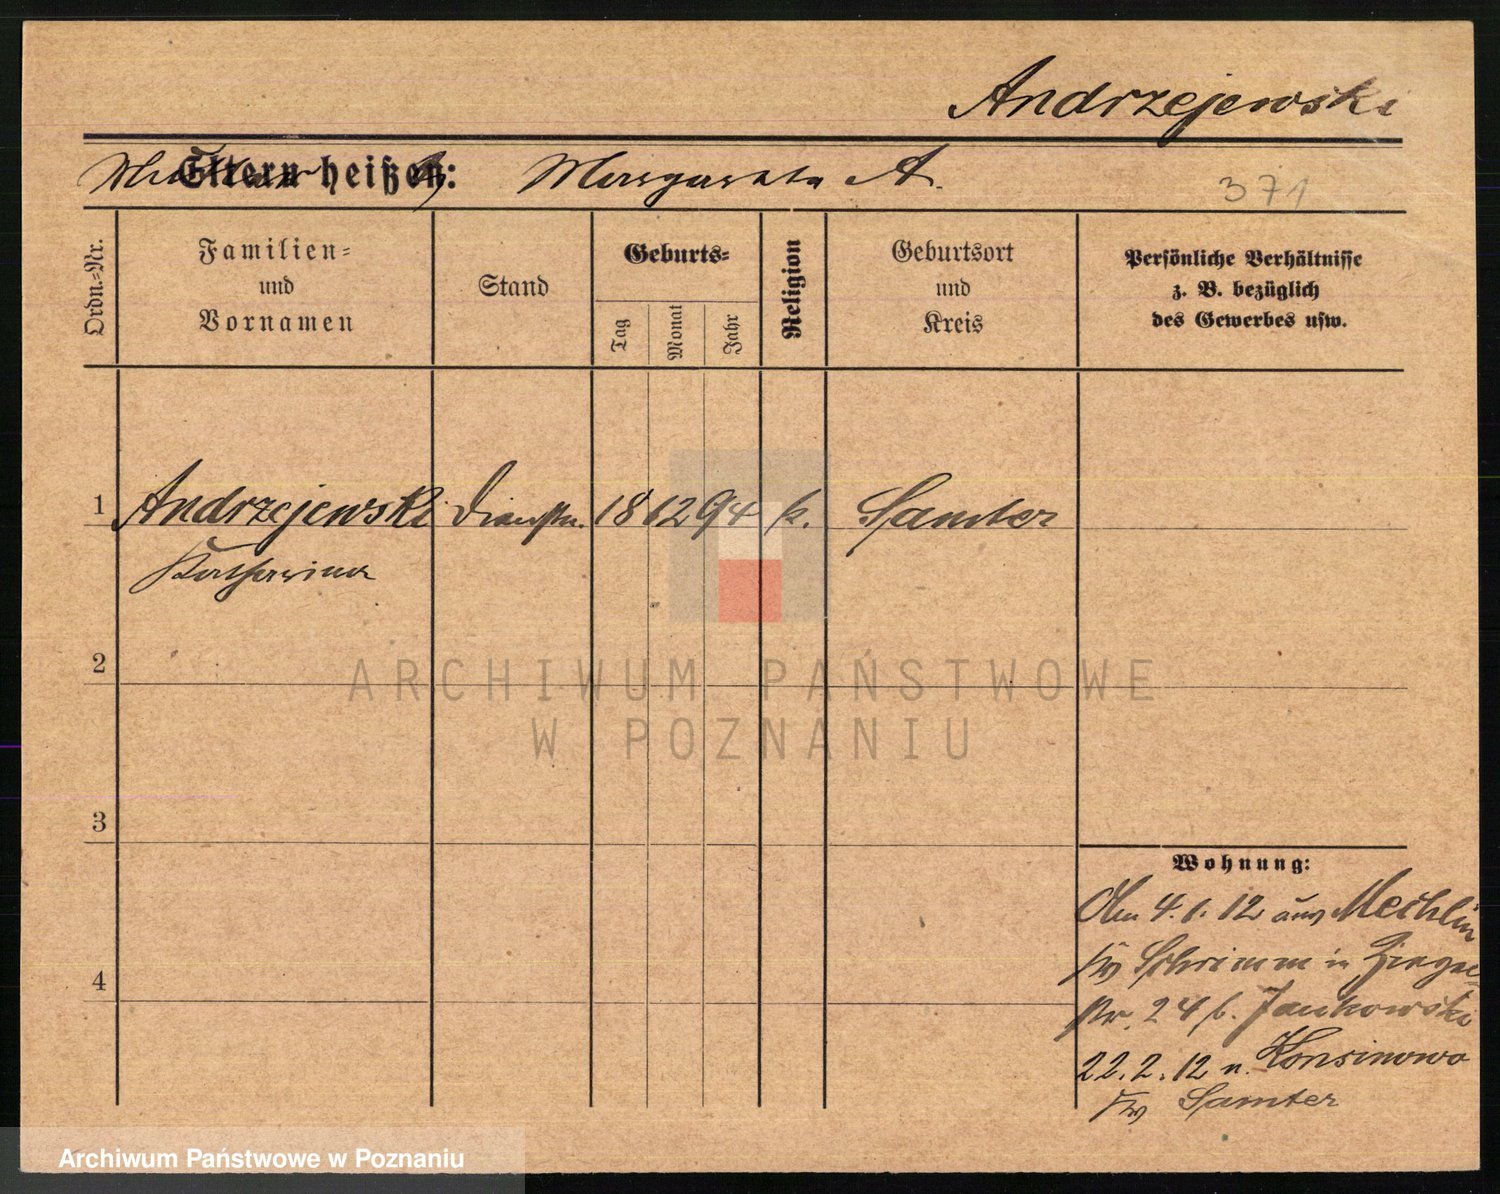 Andrzejewski
Eltern heißen: Margareta A.
371
Ordn.-Nr.
Familien-
und
Vornamen
Stand
Geburts-
Tag
Monat
Jahr
Religion
Geburtsort
und
Kreis
Persönliche Verhältnisse
z. B. bezüglich
des Gewerbes usw.
1 Andrzejewski Dienstm. 18 12 94 k. Samter
Katharina
2
3
4
Wohnung:
Am 4.1.12 aus Mechlin
Schrimm in
str. 24 b. Jankowski
22.2.12 n. Konsinowo
Samter
ARCHIWUM PAŃSTWOWE
W POZNANIU
Archiwum Państwowe w Poznaniu